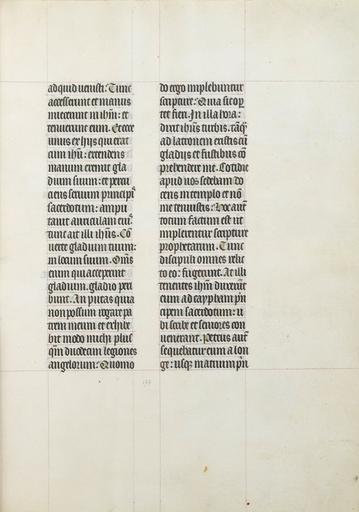 ad quid uenisti. Tunc
accesserunt et manus
iniecerunt in ihm: et
tenuerunt eum. Et ecce
unus ex hijs qui erāt
cum ihū: extendens
manum exemit gla
dium suum: et percu
ciens seruum principis
sacerdotum: ampu
tauit auriculam eius.
Tunc ait illi ihūs. Cō
uerte gladium tuum:
in locum suum. Om̄s
enim qui acceperint
gladium. gladio peri
bunt. An putas quia
non possum rogare pa
trem meum et exhibe
bit modo michi plus
qm̄ duodecim legiones
angelorum: Quomo
do ergo implebuntur
scripture: Quia sic opʒ
tet fieri. In illa hora:
dixit ihūs turbis. tāqʒ
ad latronem existis cū
gladijs et fustibus cō
prehendere me. Cotidie
apud uos sedebam do
cens in templo et nō
me tenuistis: Hoc autē
totum factum est ut
implerentur scripture
prophetarum. Tunc
discipuli omnes relic
to eo: fugerunt. At illi
tenentes ihm̄ duxerūt
eum ad caypham prī
cipem sacerdotum: u
bi scribe et seniores con
uenerant. Petrus autē
sequebatur eum a lon
ge: usqʒ in atrium prī